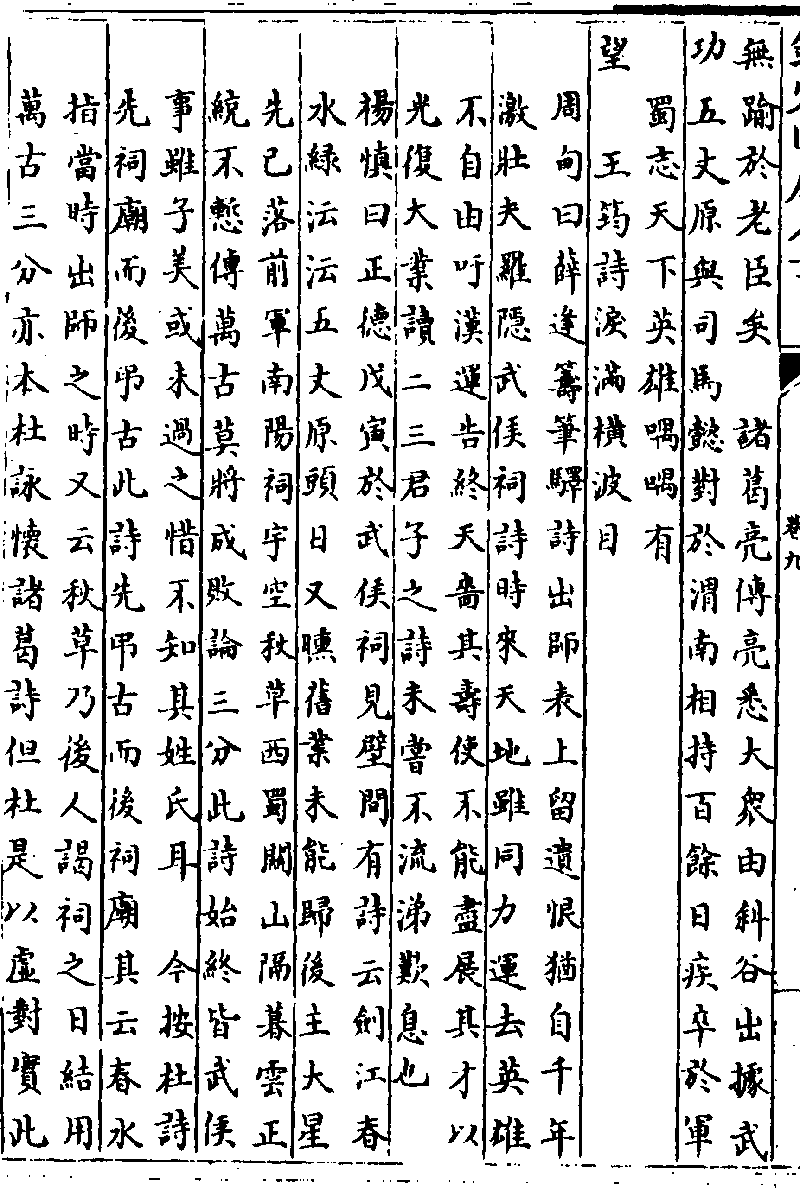 卷九
無踰於老臣矣　諸葛亮傳亮悉大衆由斜谷出據武
功五丈原與司馬懿對於渭南相持百餘日疾卒於軍
蜀志天下英雄喁喁有
望　王筠詩淚滿横波目
周甸曰薛逢籌筆驛詩出師表上留遺恨猶自千年
激壯夫羅隱武侯祠詩時來天地雖同力運去英雄
不自由吁漢運告終天嗇其壽使不能盡展其才以
光復大業讀二三君子之詩未嘗不流涕歎息也
楊慎曰正德戊寅於武侯祠見壁間有詩云劍江春
水綠沄沄五丈原頭日又曛舊業未能歸後主大星
先已落前軍南陽祠宇空秋草西蜀關山隔暮雲正
統不慙傳萬古莫將成敗論三分此詩始終皆武侯
事雖子美或未過之惜不知其姓氏耳　今按杜詩
先祠廟而後弔古此詩先弔古而後祠廟其云春水
指當時出師之時又云秋草乃後人謁祠之日結用
萬古三分亦本杜詠懷諸葛詩但杜是以虛對實此